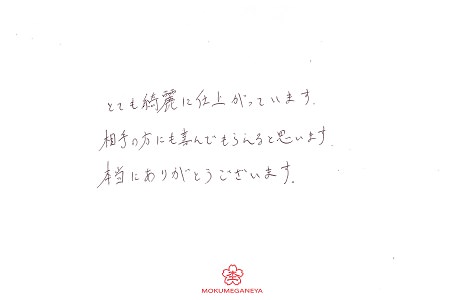 とても綺麗に仕上がっています.
相手の方にも喜んでもらえると思います.
本当にありがとうございます.
MOKUMEGANEYA